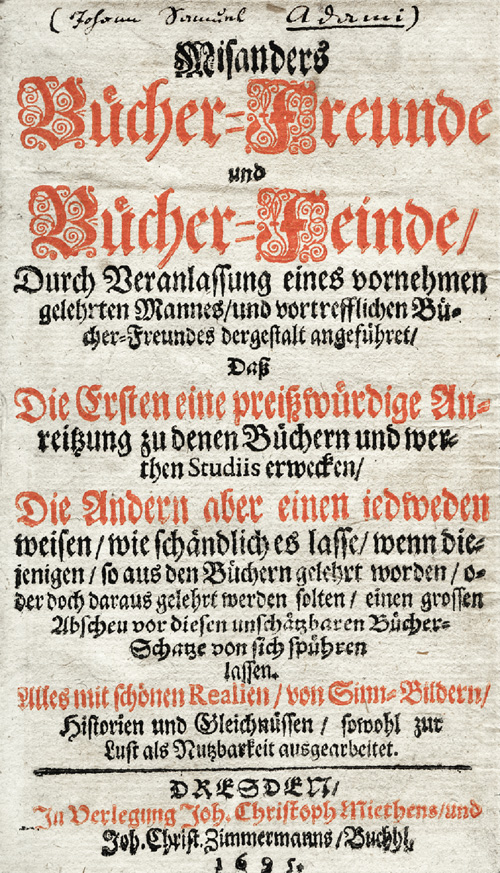 (Johann Samuel Adami)
Misanders
Bücher-Freunde
und
Bücher-Feinde/
Durch Veranlassung eines vornehmen
gelehrten Mannes/und vortrefflichen Bü-
cher-Freundes dergestalt angeführet/
Daß
Die Ersten eine preißwürdige An-
reitzung zu denen Büchern und wer-
then Studiis erwecken/
Die Andern aber einen iedweden
weisen/wie schändlich es lasse/wenn die-
jenigen/so aus den Büchern gelehrt worden/o-
der doch daraus gelehrt werden solten/einen grossen
Abscheu vor diesen unschätzbaren Bücher-
Schatze von sich spühren
lassen.
Alles mit schönen Realien/von Sinn-Bildern/
Historien und Gleichnüssen/sowohl zur
Lust als Nutzbarkeit ausgearbeitet.
DRESDEN/
In Verlegung Joh. Christoph Miethens/und
Joh. Christ. Zimmermanns/Buchhl.
1695.